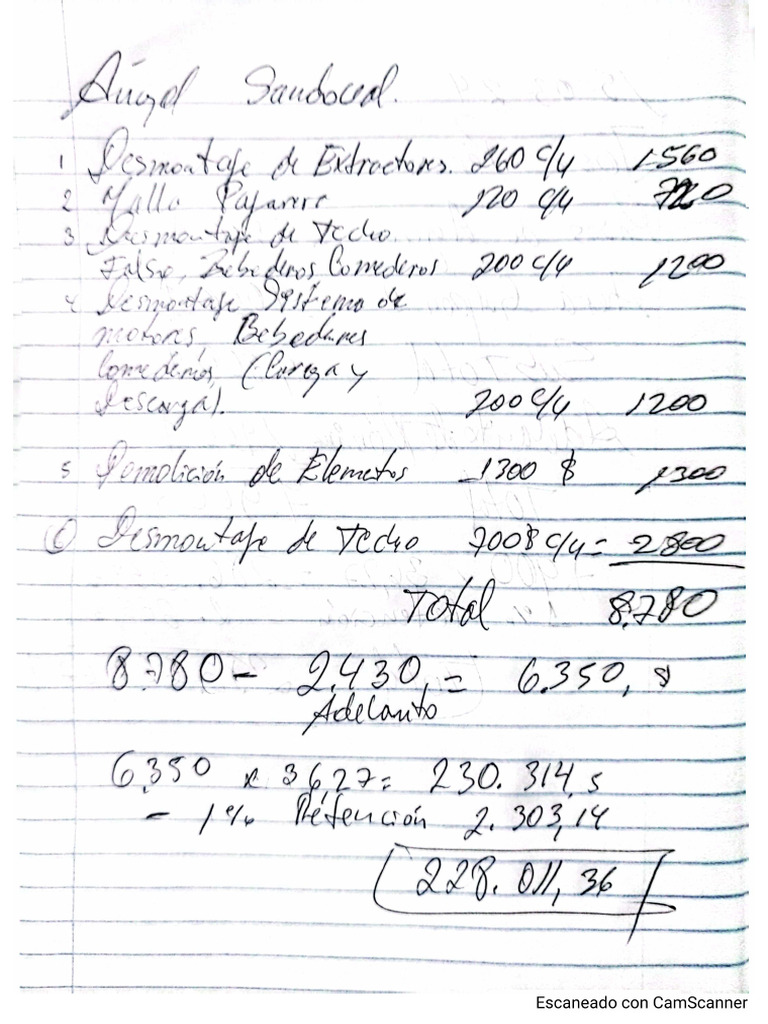 Ángel Sandoval.
1 Desmontaje de Extractores. 260 c/u 1.560
2 Malla Pajarera 120 c/u 720
3 Desmontaje de Techo
Falso, Bebederos Comederos 200 c/u 1200
4 Desmontaje Sistema de
motores, Bebederos
Comederos, (Carga y
Descarga). 200 c/u 1200
5 Demolición de Elemetos 1300 $ 1300
6 Desmontaje de Techo 700$ c/u = 2800
Total 8.780
8.780 - 2.430, = 6.350, $
Adelanto
6.350 x 36,27 = 230.314,5
- 1% Retención 2.303,14
228.011,36
Escaneado con CamScanner